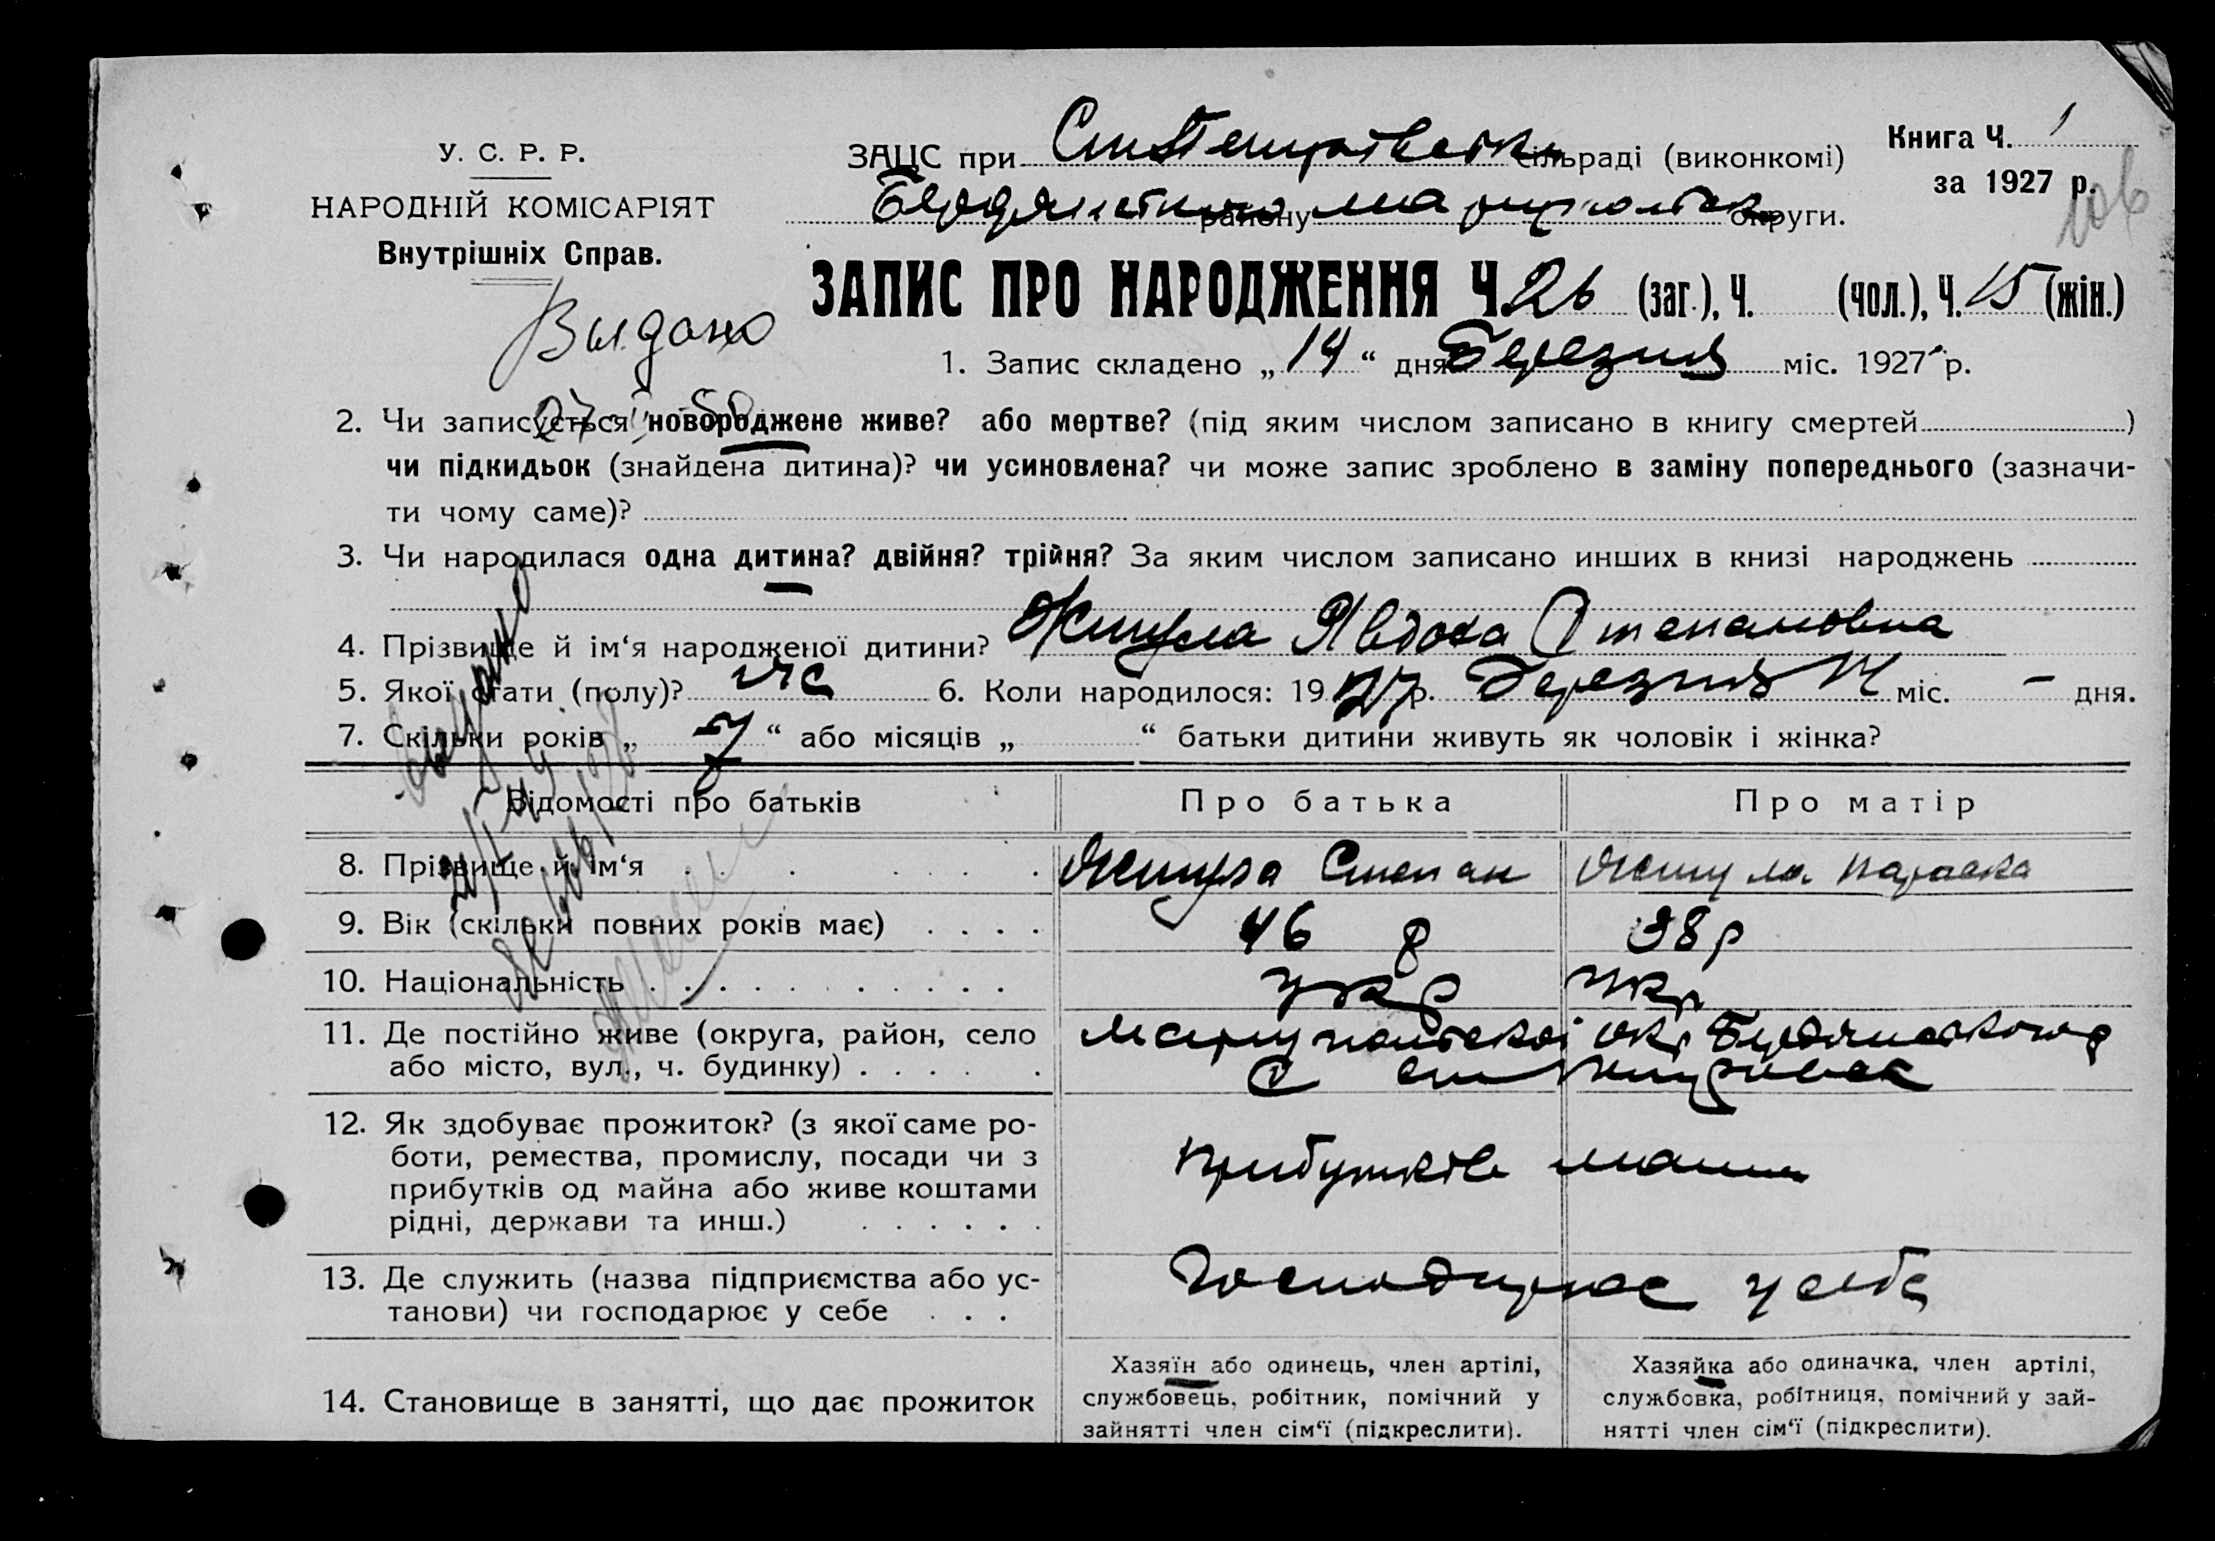 У. С. Р. Р.
НАРОДНІЙ КОМІСАРІЯТ
Внутрішніх Справ.
ЗАЦС при сільраді (виконкомі)
Бердянського району Маріупольськ округи.
Книга Ч. 1
за 1927 р.
106
ЗАПИС ПРО НАРОДЖЕННЯ Ч. 26 (заг.), Ч. (чол.), Ч. 15 (жін.)
Выдано
1. Запис складено „14“ дня Березня міс. 1927 р.
2. Чи записується новороджене живе? або мертве? (під яким числом записано в книгу смертей)
чи підкидьок (знайдена дитина)? чи усиновлена? чи може запис зроблено в заміну попереднього (зазначи-
ти чому саме)?
3. Чи народилася одна дитина? двійня? трійня? За яким числом записано инших в книзі народжень
4. Прізвище й ім‘я народженої дитини? Жигула Явдоха Степановна
5. Якої стати (полу)? жс 6. Коли народилося: 1927 р. Березня міс. – дня.
7. Скільки років „7“ або місяців „ “ батьки дитини живуть як чоловік і жінка?
Відомості про батьків Про батька Про матір
8. Прізвище й ім‘я Жигула Степан Жигула Параска
9. Вік (скільки повних років має) 46 р 38 р
10. Національність укр укр
11. Де постійно живе (округа, район, село Маріупольскої окр Бердянського р
або місто, вул., ч. будинку) с
12. Як здобуває прожиток? (з якої саме ро-
боти, ремества, промислу, посади чи з прибутків
прибутків од майна або живе коштами
рідні, держави та инш.)
13. Де служить (назва підприємства або ус- господарює у себе
танови) чи господарює у себе
14. Становище в занятті, що дає прожиток
Хазяїн або одинець, член артілі,
службовець, робітник, помічний у
зайнятті член сім‘ї (підкреслити).
Хазяйка або одиначка, член артілі,
службовка, робітниця, помічний у зай-
нятті член сім‘ї (підкреслити).